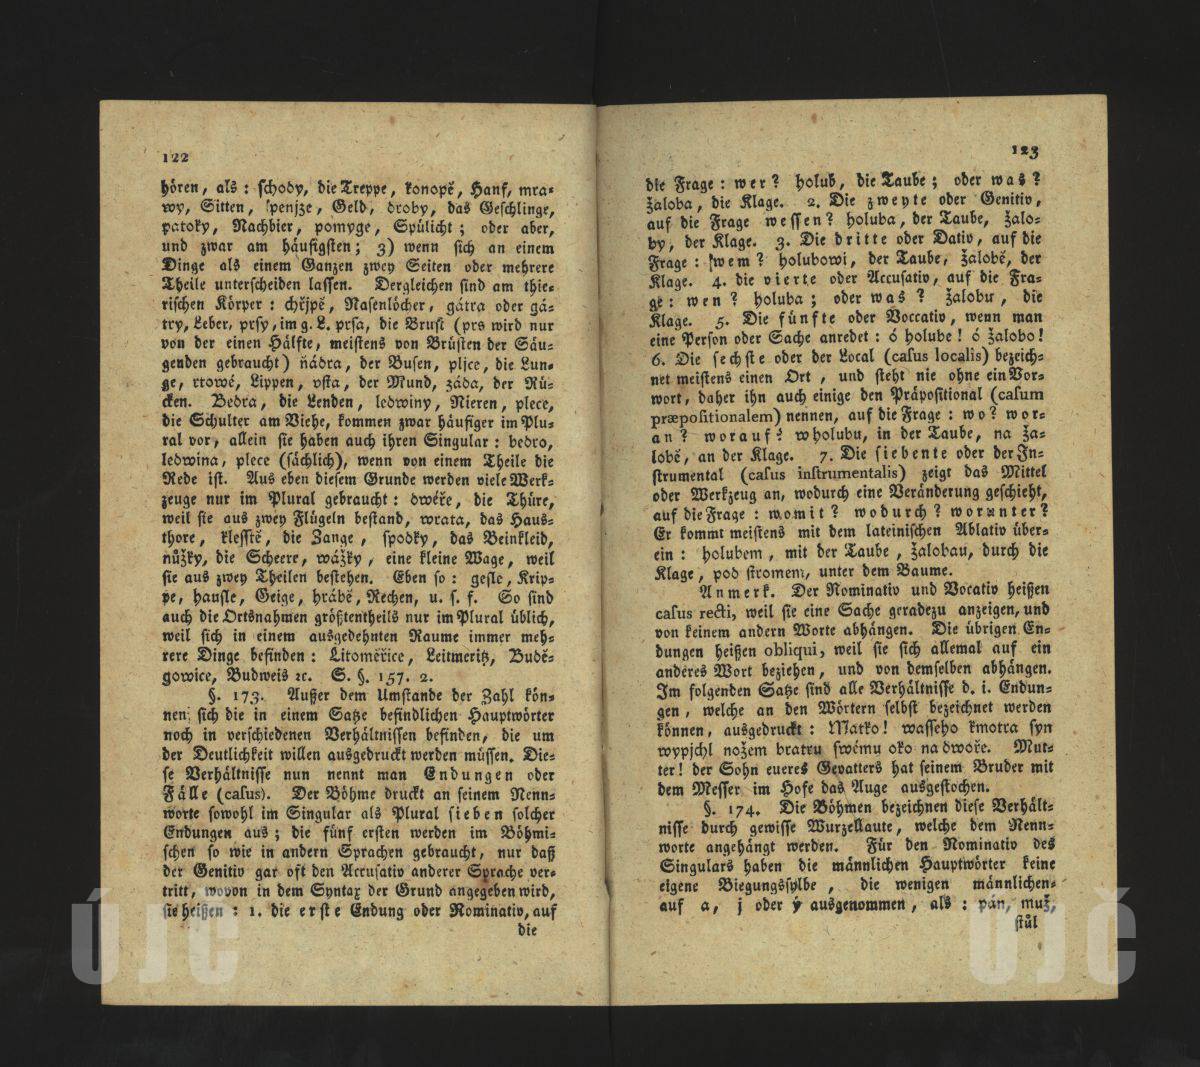 122
hören, als: schody, die Treppe, konopě, Hanf, mra=
wy, Sitten, penjze, Geld, droby, das Geschlinge,
patoky, Nachbier, pomyge, Spülicht; oder aber,
und zwar am häufigsten; 3) wenn sich an einem
Dinge als einem Ganzen zwey Seiten oder mehrere
Theile unterscheiden lassen. Dergleichen sind am thie=
rischen Körper: chřjpě, Nasenlöcher, gátra oder gá=
try, Leber, prsy, im g. L. prsa, die Brust (prs wird nur
von der einen Hälfte, meistens von Brüsten der Säu=
genden gebraucht) ňádra, der Busen, pljce, die Lun=
ge, rtowé, Lippen, vsta, der Mund, záda, der Rü=
cken. Bedra, die Lenden, ledwiny, Nieren, plece,
die Schulter am Viehe, kommen zwar häufiger im Plu=
ral vor, allein sie haben auch ihren Singular: bedro,
ledwina, plece (sächlich), wenn von einem Theile die
Rede ist. Aus eben diesem Grunde werden viele Werk=
zeuge nur im Plural gebraucht: dwéře, die Thüre,
weil sie aus zwey Flügeln bestand, wrata, das Haus=
thore, klesstě, die Zange, spodky, das Beinkleid,
nůžky, die Scheere, wážky, eine kleine Wage, weil
sie aus zwey Theilen bestehen. Eben so: gesle, Krip=
pe, hausle, Geige, hrábě, Rechen, u. s. f. So sind
auch die Ortsnahmen größtentheils nur im Plural üblich,
weil sich in einem ausgedehnten Raume immer meh=
rere Dinge befinden: Litoměřice, Leitmeritz, Budě=
gowice, Budweis ꝛc. S. §. 157. 2.
§. 173. Außer dem Umstande der Zahl kön=
nen sich die in einem Satze befindlichen Hauptwörter
noch in verschiedenen Verhältnissen befinden, die um
der Deutlichkeit willen ausgedruckt werden müssen. Die=
se Verhältnisse nun nennt man Endungen oder
Fälle (casus). Der Böhme druckt an seinem Nenn=
worte sowohl im Singular als Plural sieben solcher
Endungen aus; die fünf ersten werden im Böhmi=
schen so wie in andern Sprachen gebraucht, nur daß
der Genitiv gar oft den Accusativ anderer Sprache ver=
tritt, wovon in dem Syntax der Grund angegeben wird,
sie heißen: 1. die erste Endung oder Nominativ, auf
die
123
die Frage: wer? holub, die Taube; oder was?
žaloba, die Klage. 2. Die zweyte oder Genitiv,
auf die Frage wessen? holuba, der Taube, žalo=
by, der Klage. 3. Die dritte oder Dativ, auf die
Frage: wem? holubowi, der Taube, žalobě, der
Klage. 4. die vierte oder Accusativ, auf die Fra=
ge: wen? holuba; oder was? žalobu, die
Klage. 5. Die fünfte oder Voccativ, wenn man
eine Person oder Sache anredet: ó holube! ó žalobo!
6. Die sechste oder der Local (casus localis) bezeich=
net meistens einen Ort, und steht nie ohne ein Vor=
wort, daher ihn auch einige den Präpositional (casum
præpositionalem) nennen, auf die Frage: wo? wor=
an? worauf? w holubu, in der Taube, na ža=
lobě, an der Klage. 7. Die siebente oder der In=
strumental (casus instrumentalis) zeigt das Mittel
oder Werkzeug an, wodurch eine Veränderung geschieht,
auf die Frage: womit? wodurch? worunter?
Er kommt meistens mit dem lateinischen Ablativ über=
ein: holubem, mit der Taube, žalobau, durch die
Klage, pod stromem, unter dem Baume.
Anmerk. Der Nominativ und Vocativ heißen
casus recti, weil sie eine Sache geradezu anzeigen, und
von keinem andern Worte abhängen. Die übrigen En=
dungen heißen obliqui, weil sie sich allemal auf ein
anderes Wort beziehen, und von demselben abhängen.
Im folgenden Satze sind alle Verhältnisse d. i. Endun=
gen, welche an den Wörtern selbst bezeichnet werden
können, ausgedruckt: Matko! wasseho kmotra syn
wypjchl nožem bratru swému oko na dwoře. Mut=
ter! der Sohn eueres Gevatters hat seinem Bruder mit
dem Messer im Hofe das Auge ausgestochen.
§. 174. Die Böhmen bezeichnen diese Verhält=
nisse durch gewisse Wurzellaute, welche dem Nenn=
worte angehängt werden. Für den Nominativ des
Singulars haben die männlichen Hauptwörter keine
eigene Biegungssylbe, die wenigen männlichen
auf a, j oder ý ausgenommen, als: pán, muž,
stůl
ÚJČ
ÚJČ